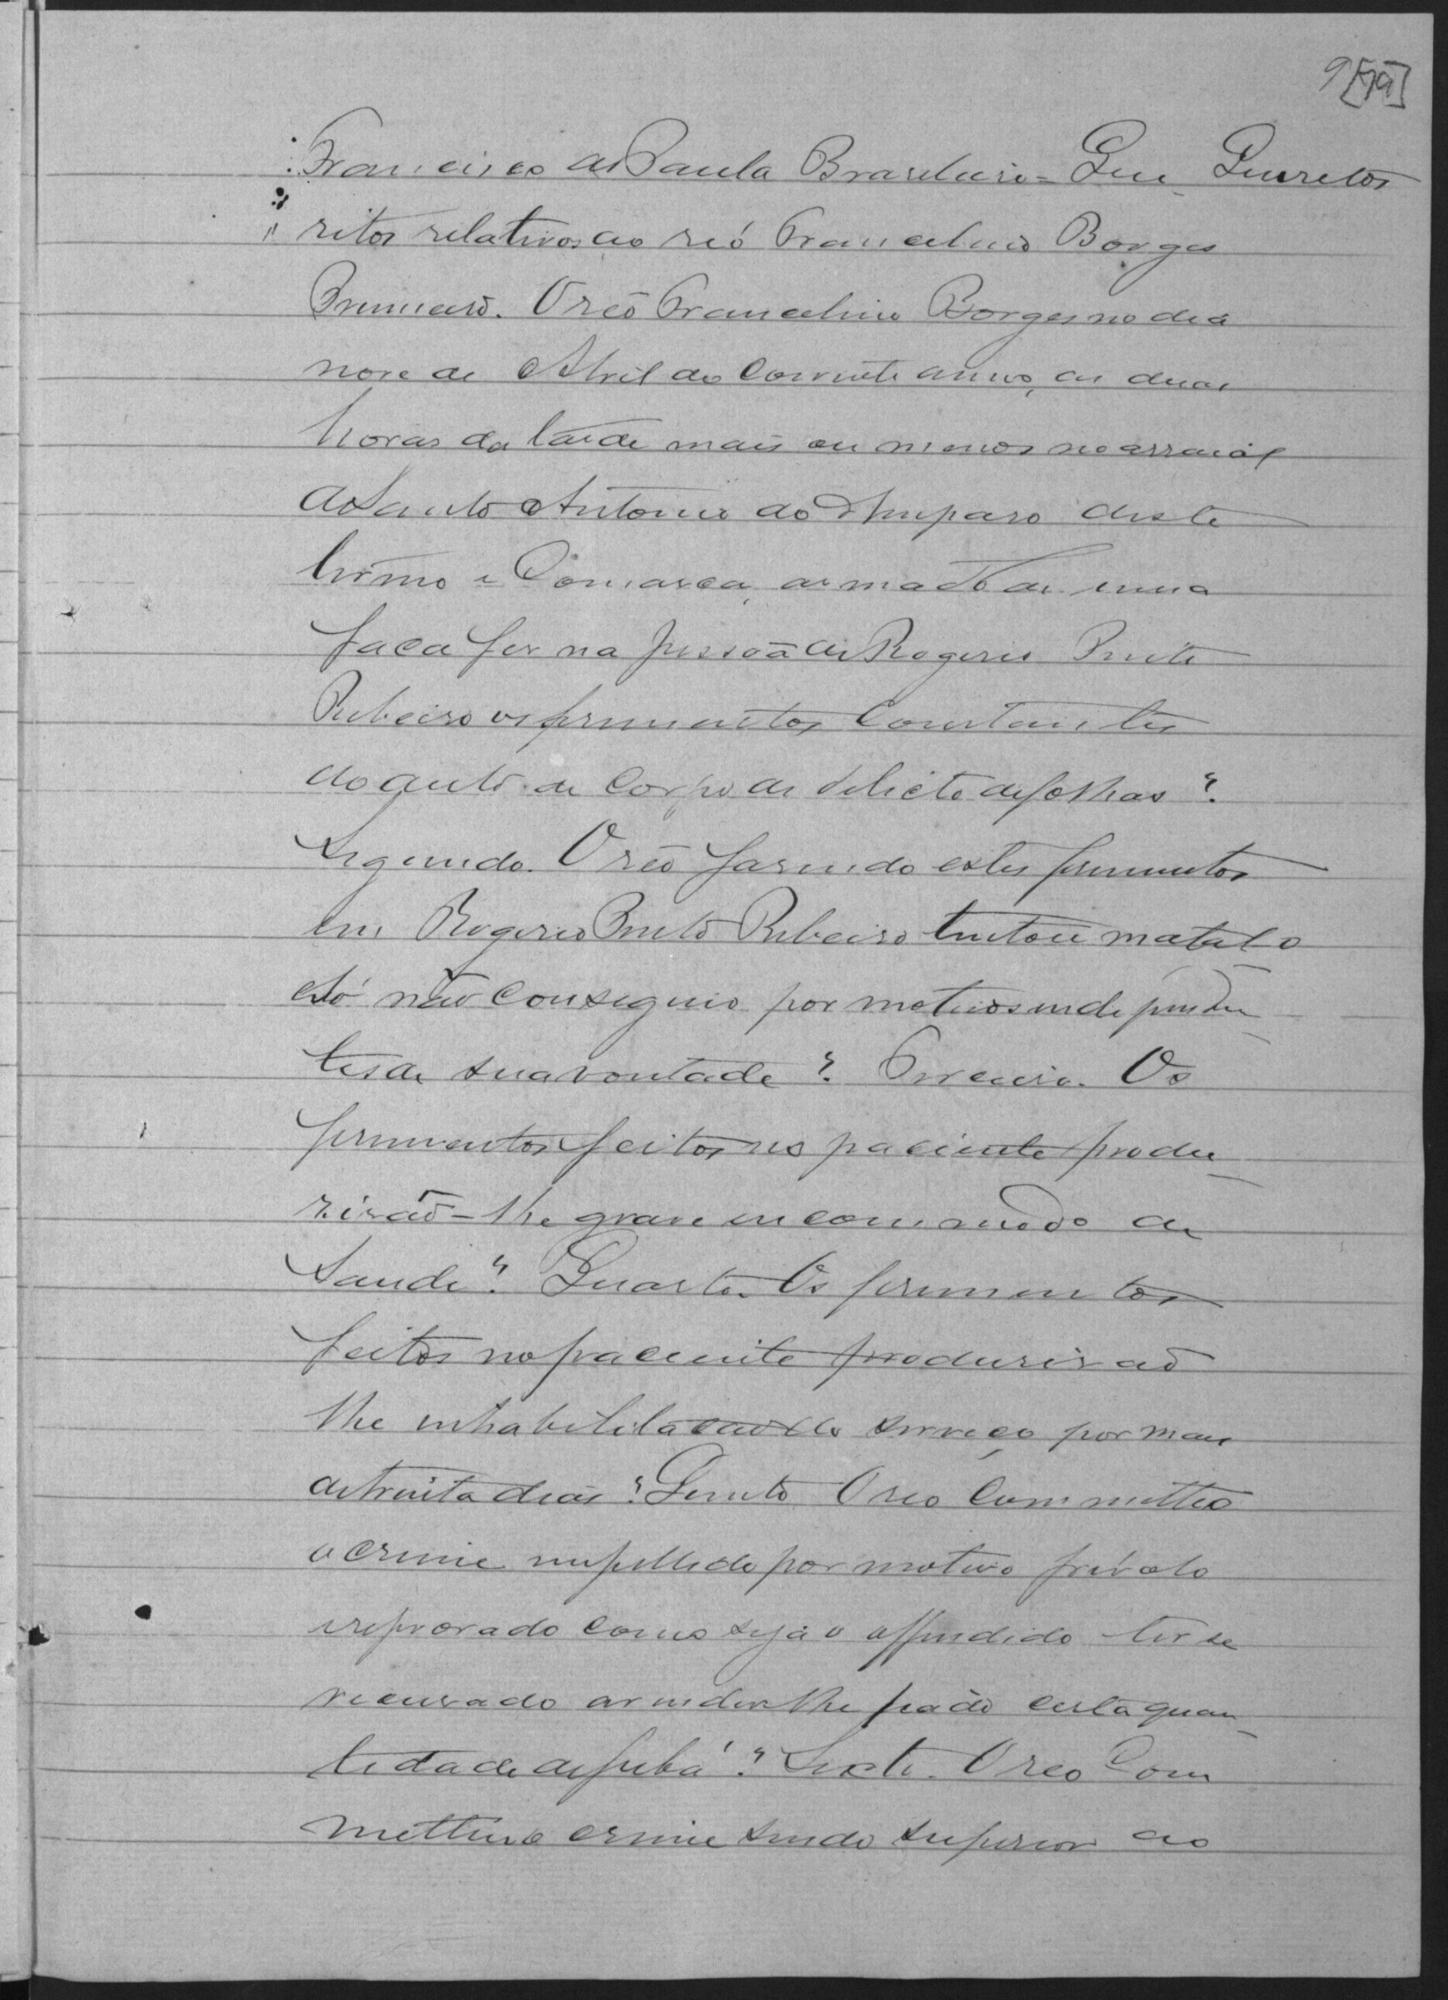 9 [79]
Francisco de Paula Brasileiro = Que Queretos
ritos relativos ao reó Francelino Borges
Primeiro. O reó Francelino Borges no dia
nove de Abril do corrente anno, as duas
horas da tarde mais ou menos no arraial
de Santo Antonio do Amparo deste
termo e Comarca, armado de uma
faca fez na pessoa de Rogerio Pinto
Ribeiro os ferimentos constantes
do auto de corpo de delicto de folhas ?
Segundo. O reó fasendo estes ferimentos
em Rogerio Pinto Ribeiro tentou matal o
e só não conseguio por motivos independen
tes de sua vontade ? Terceiro. Os
ferimentos feitos no paciente produ
zirão-lhe grave incommodo de
saude ? Quarto. Os ferimentos
feitos no paciente produsirão
lhe inhabilitacão de serviço por mais
de trinta dias ? Quinto O reo commetteo
o crime impellido por motivo frivolo
e reprovado como seja o offendido ter se
recusado a vender lhe fiado certa quan
tidade de fubá ? Sexto. O reo com
metteu o crime sendo superior ao